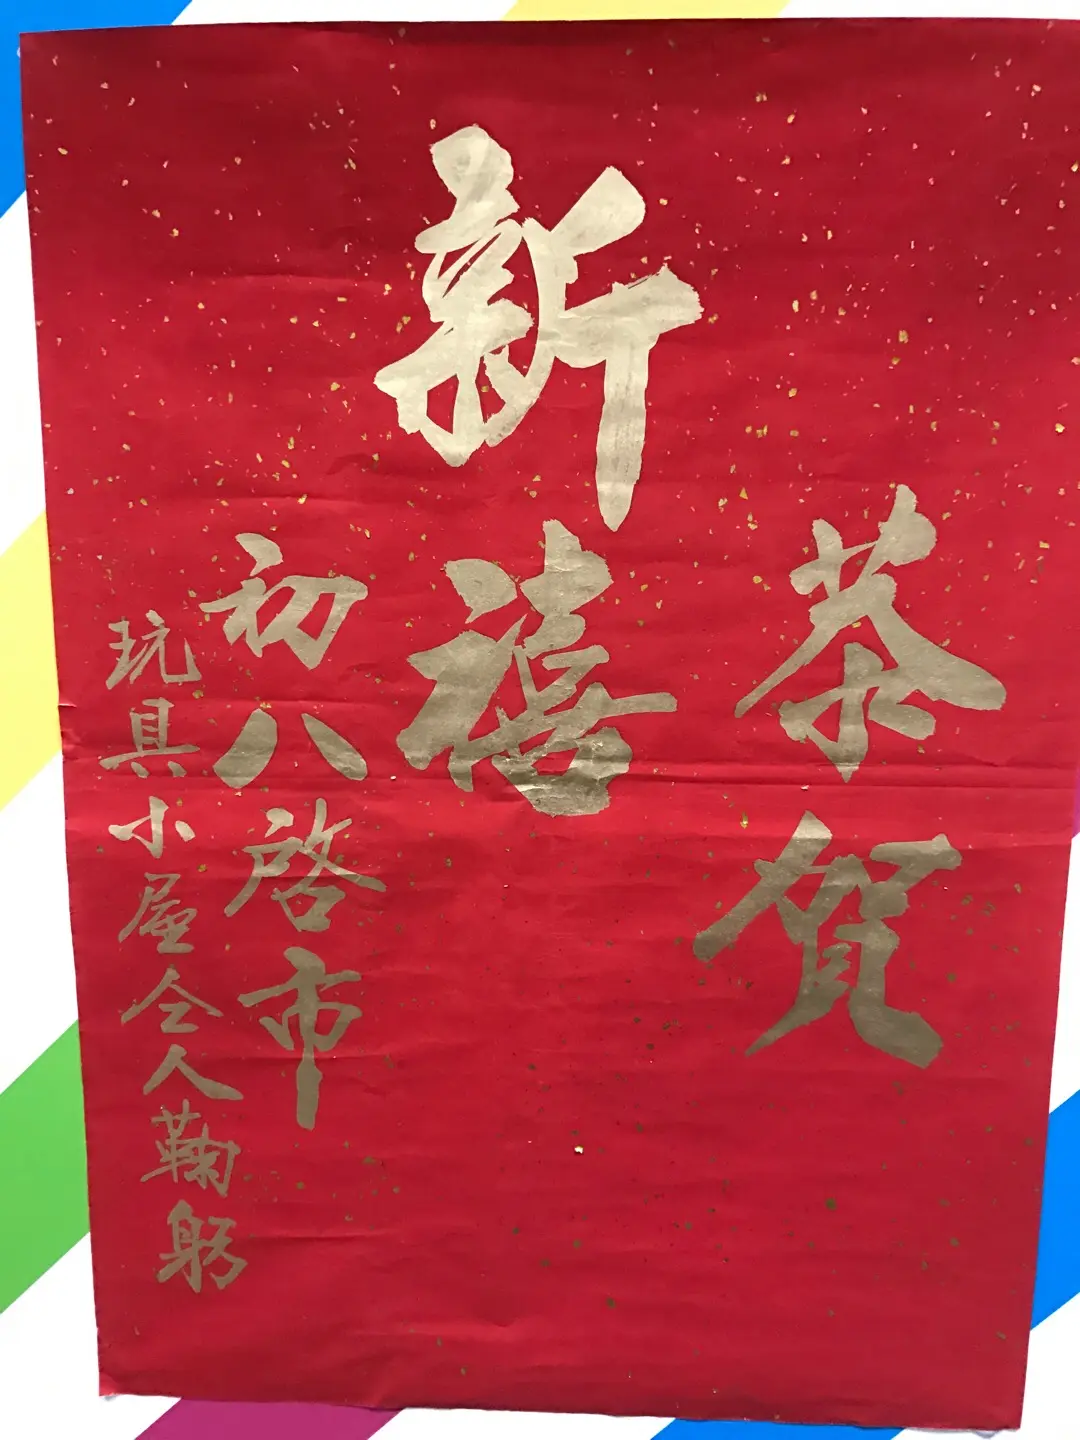 恭賀
新禧
初八啓市
玩具小屋仝人鞠躬